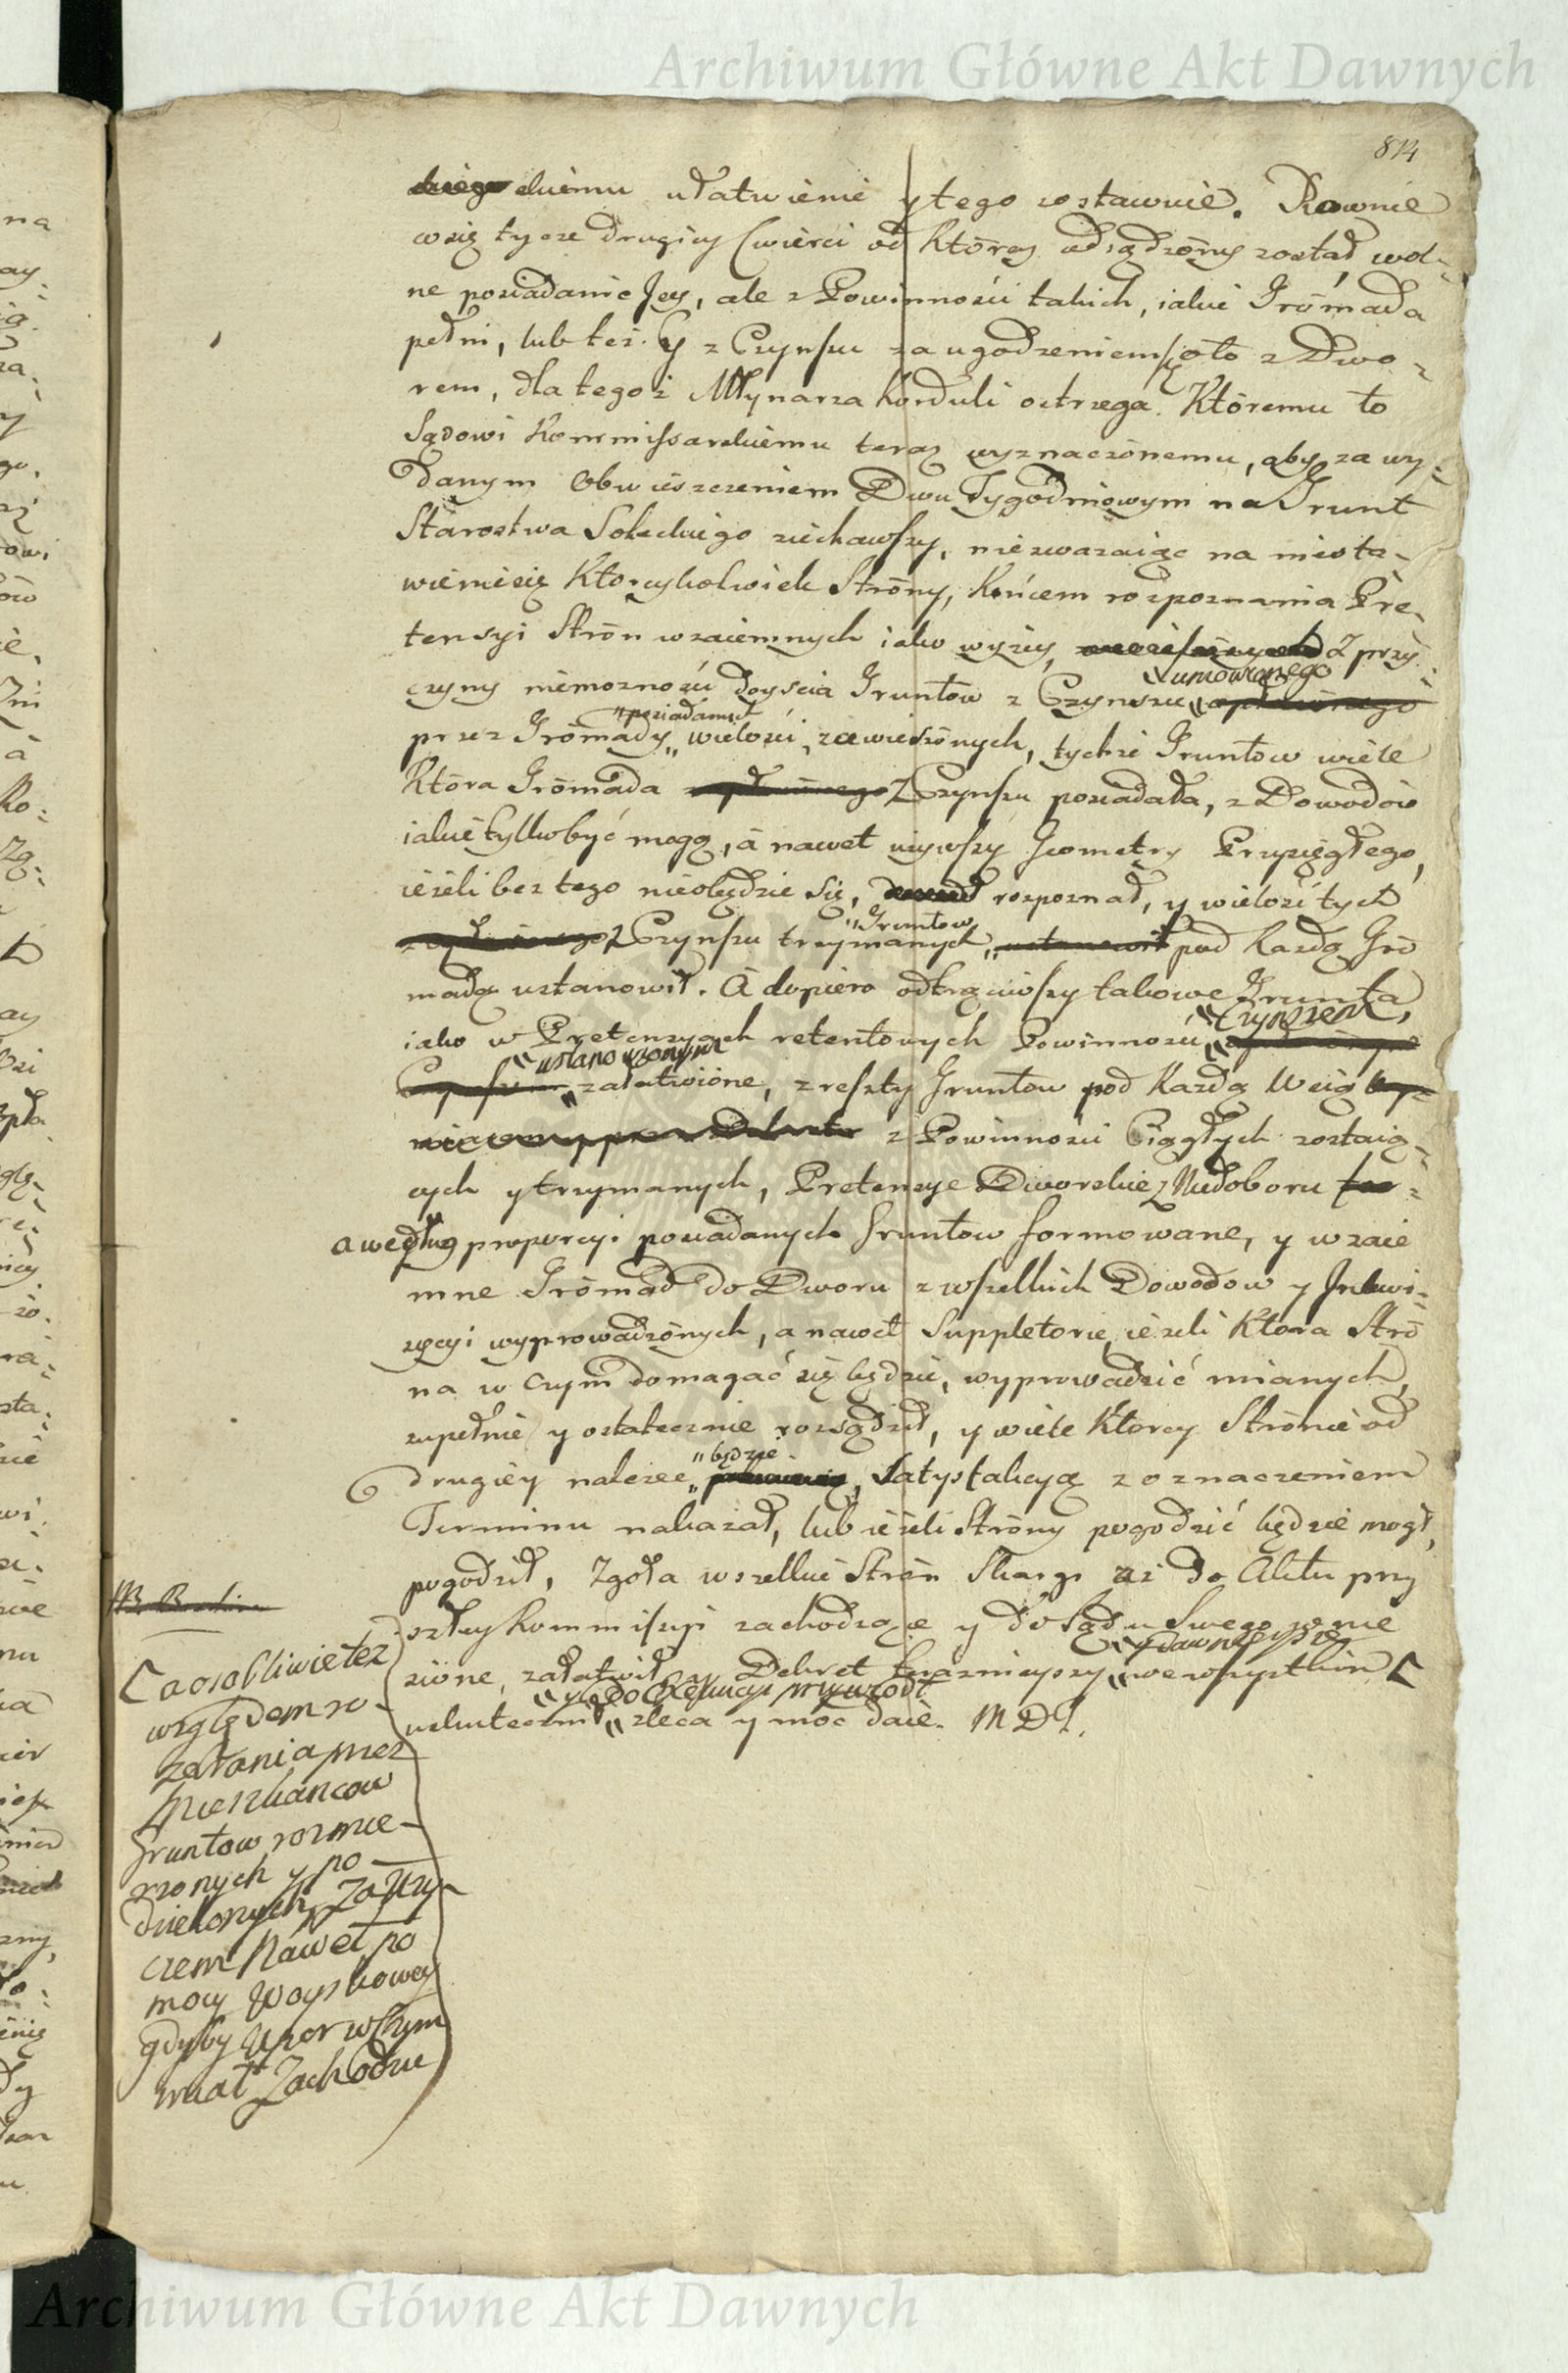 Archiwum Główne Akt Dawnych
814
skiemu ułatwienie y tego zostawuie. Rownie
co się tycze drugiey Cwierci od ktorey odsądzony został wol-
ne posiadanie Jey, ale z Powinności takich, iakie Gromada
pełni, lub też y z Czynszu za ugodzeniem się o to z Dwo-
rem, dla tegoż Młynarza Korduli ostrzega. Któremu to
Sądowi Kommissarskiemu teraz wyznaczonemu, aby za wy-
danym Obwieszczeniem Dwu Tygodniowym na Grunt
Starostwa Soleckiego ziechawszy, niezwazaiąc na niesta-
wienie się Ktoreykolwiek Strony, końcem rozpoznania Pre-
tensyi Stron wzaiemnych iako wyżey, z przy-
umowionego
czyny niemozności doyscia Gruntow z Czynszu
posiadanych
przez Gromady wielości zawieszonych, tychże Gruntow wiele
Ktora Gromada z Czynszu posiadała, z Dowodow
iakie tylko być mogą, a nawet używszy Geometry Przysięgłego,
ieżeli bez tego nieobędzie się, rozpoznał, y wielość tych
Gruntow
z Czynszu trzymanych pod każdą Gro
madą ustanowił. A dopiero odtrąciwszy takowe Grunta
iako w Pretensyach retentowych Powinności Czynszem,
ustanowionym
załatwione, z reszty Gruntow pod Każdą Wsią
z Powinności Ciągłych zostaią-
cych y trzymanych, Pretensye Dworskie z Niedoboru
a według proporcyi posiadanych Gruntow formowane, y wzaie
mne Gromad do Dworu z wszelkich Dowodow y Inkwi-
zycyi wyprowadzonych, a nawet Suppletorie ieżeli Ktora Stro
na w czym domagać się będzie, wyprowadzić mianych,
zupełnie y ostatecznie rozsądził, y wiele Ktorey Stronie od
będzie
drugiey należec, Satysfakcyą z oznaczeniem
Terminu nakazał, lub ieżeli Strony pogodzić będzie mogł,
pogodził, Zgoła wszelkie Stron Skargi aż do Aktu przy
szłey Kommissyi zachodzące y do Sądu Swego wnie
sione, załatwił, y Dekret teraznieyszy y dawnieysze we wszystkim
y do Exekucyi przywiodł
uskutecznił zleca y moc daie. M D L.
a osobliwie też
względem ro
zebrania przez
Mieszkancow
Gruntow rozmie-
rzonych y po
dzielonych, Zaży-
ciem Nawet po
mocy Woyskowey
gdyby Upor w tym
miał Zachodzić
Archiwum Główne Akt Dawnych